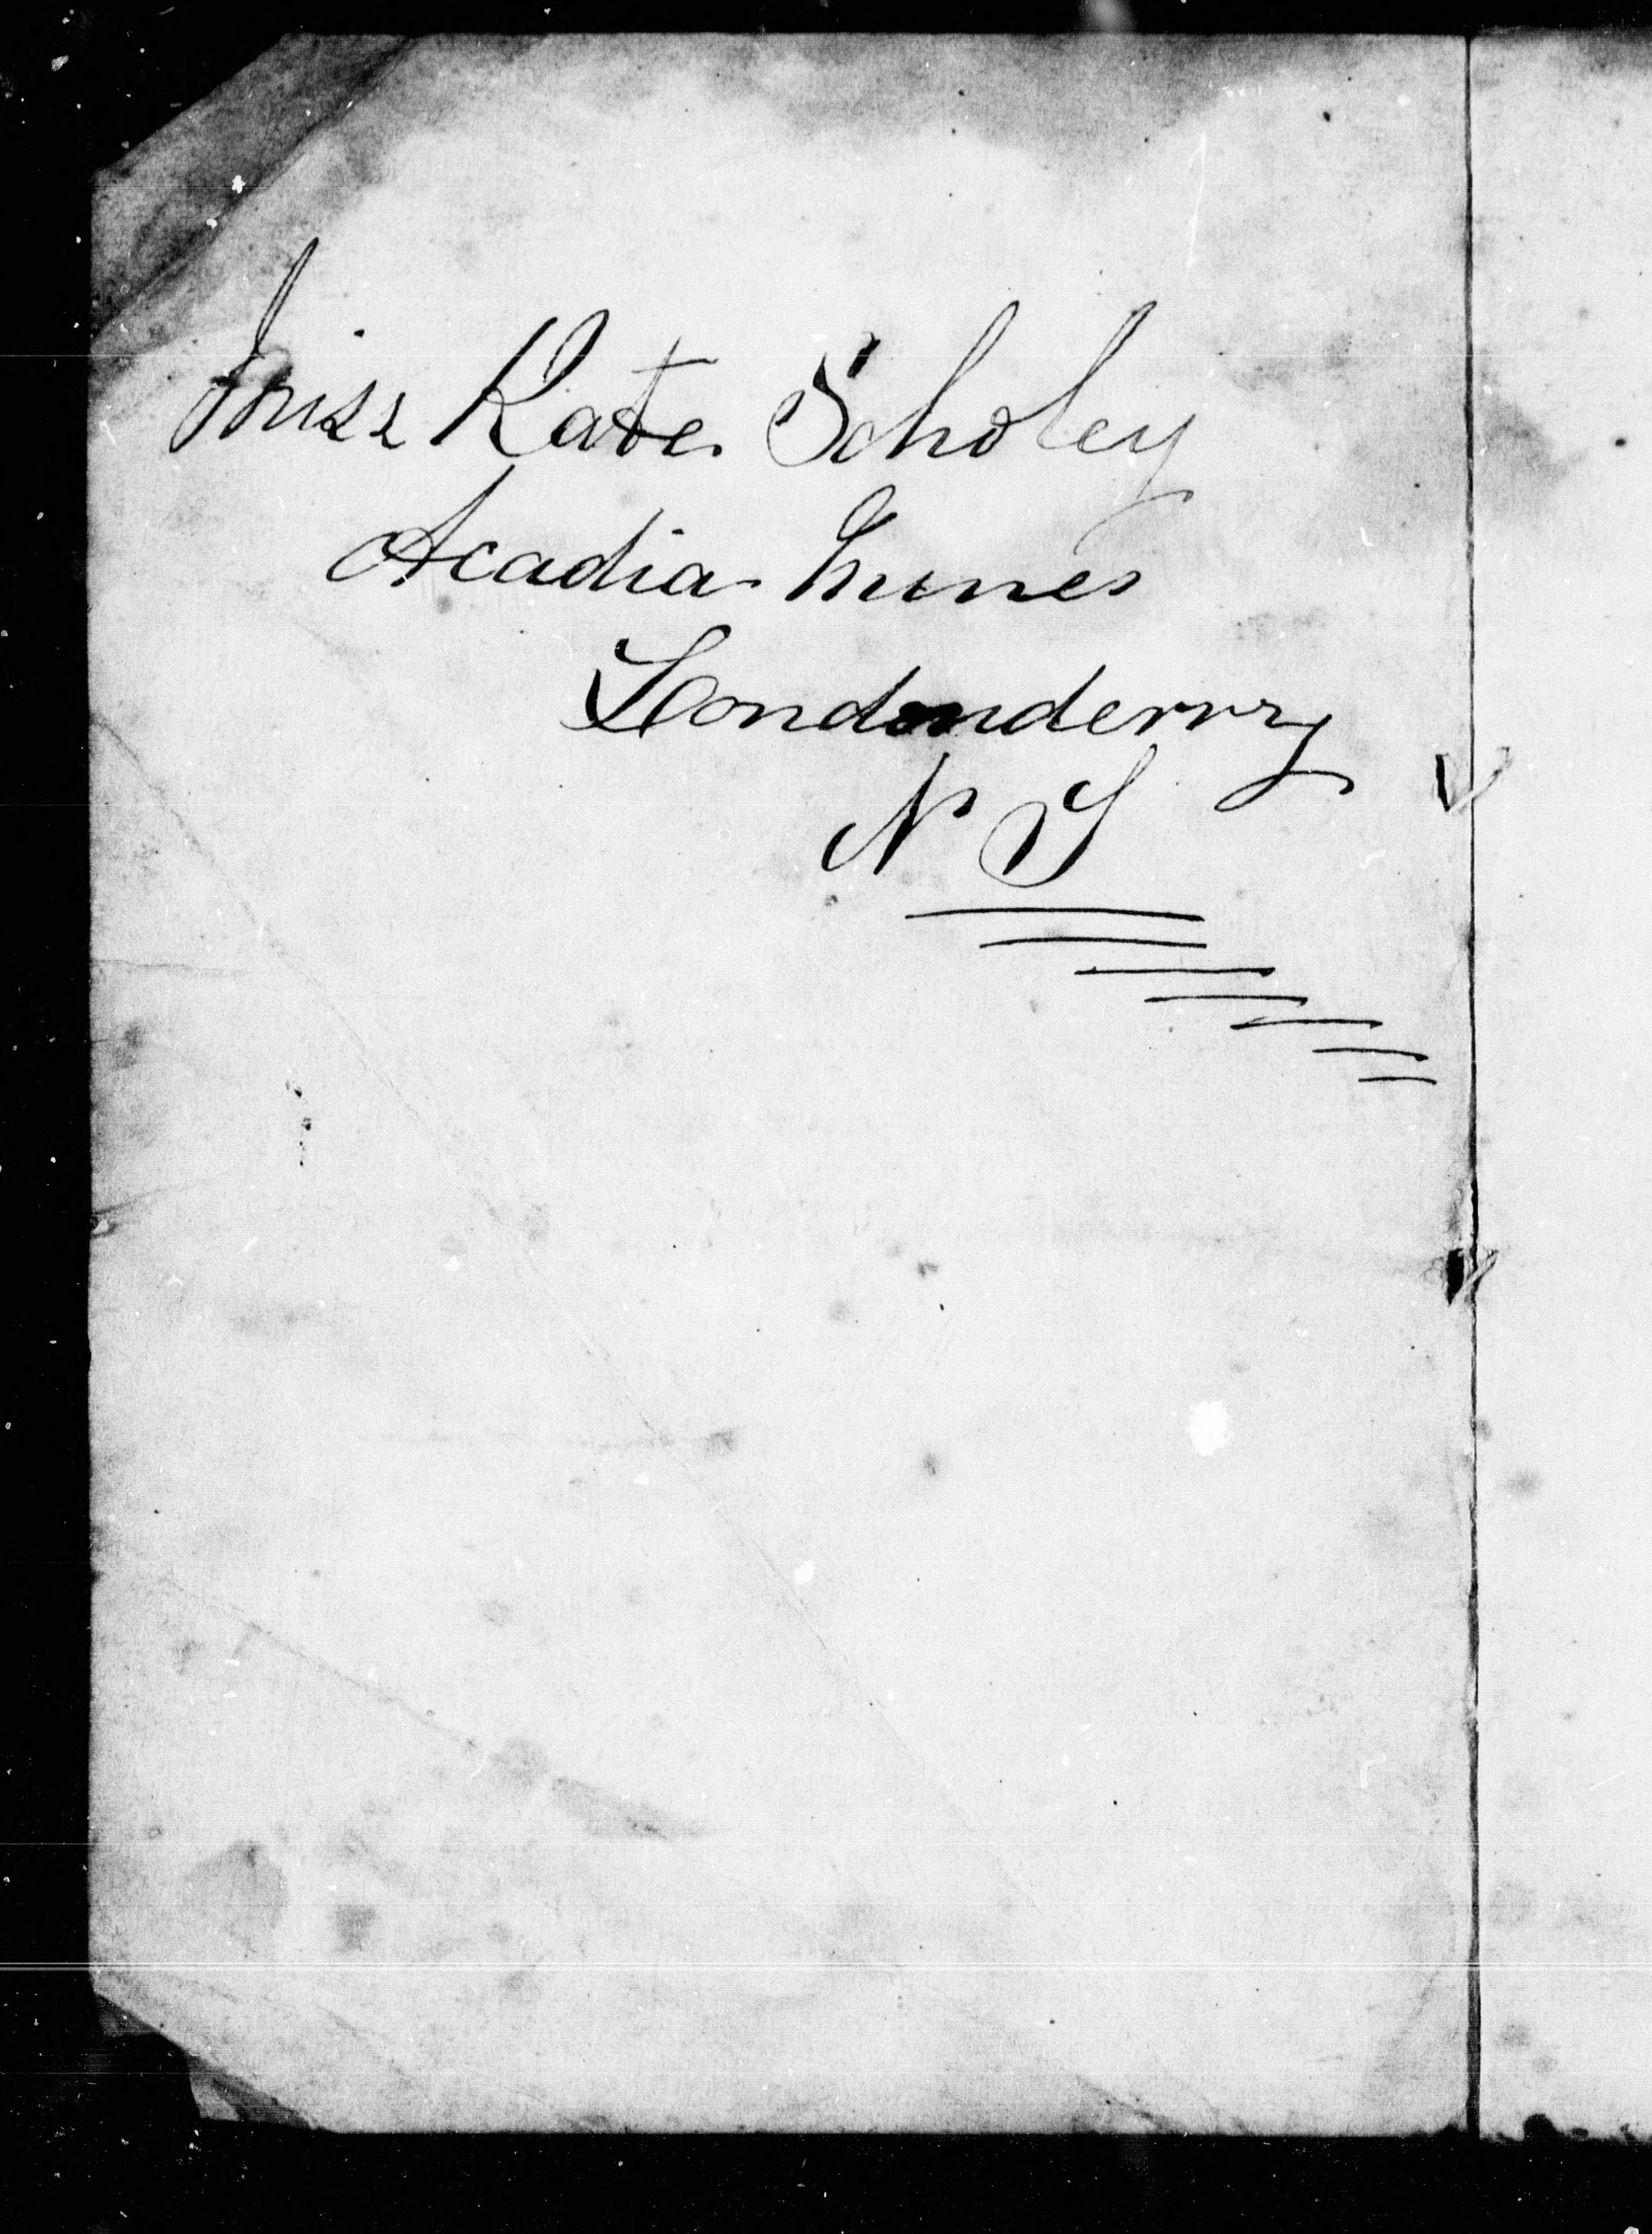 Miss Kate Scholey
Acadia Mines
Londonderry
N S